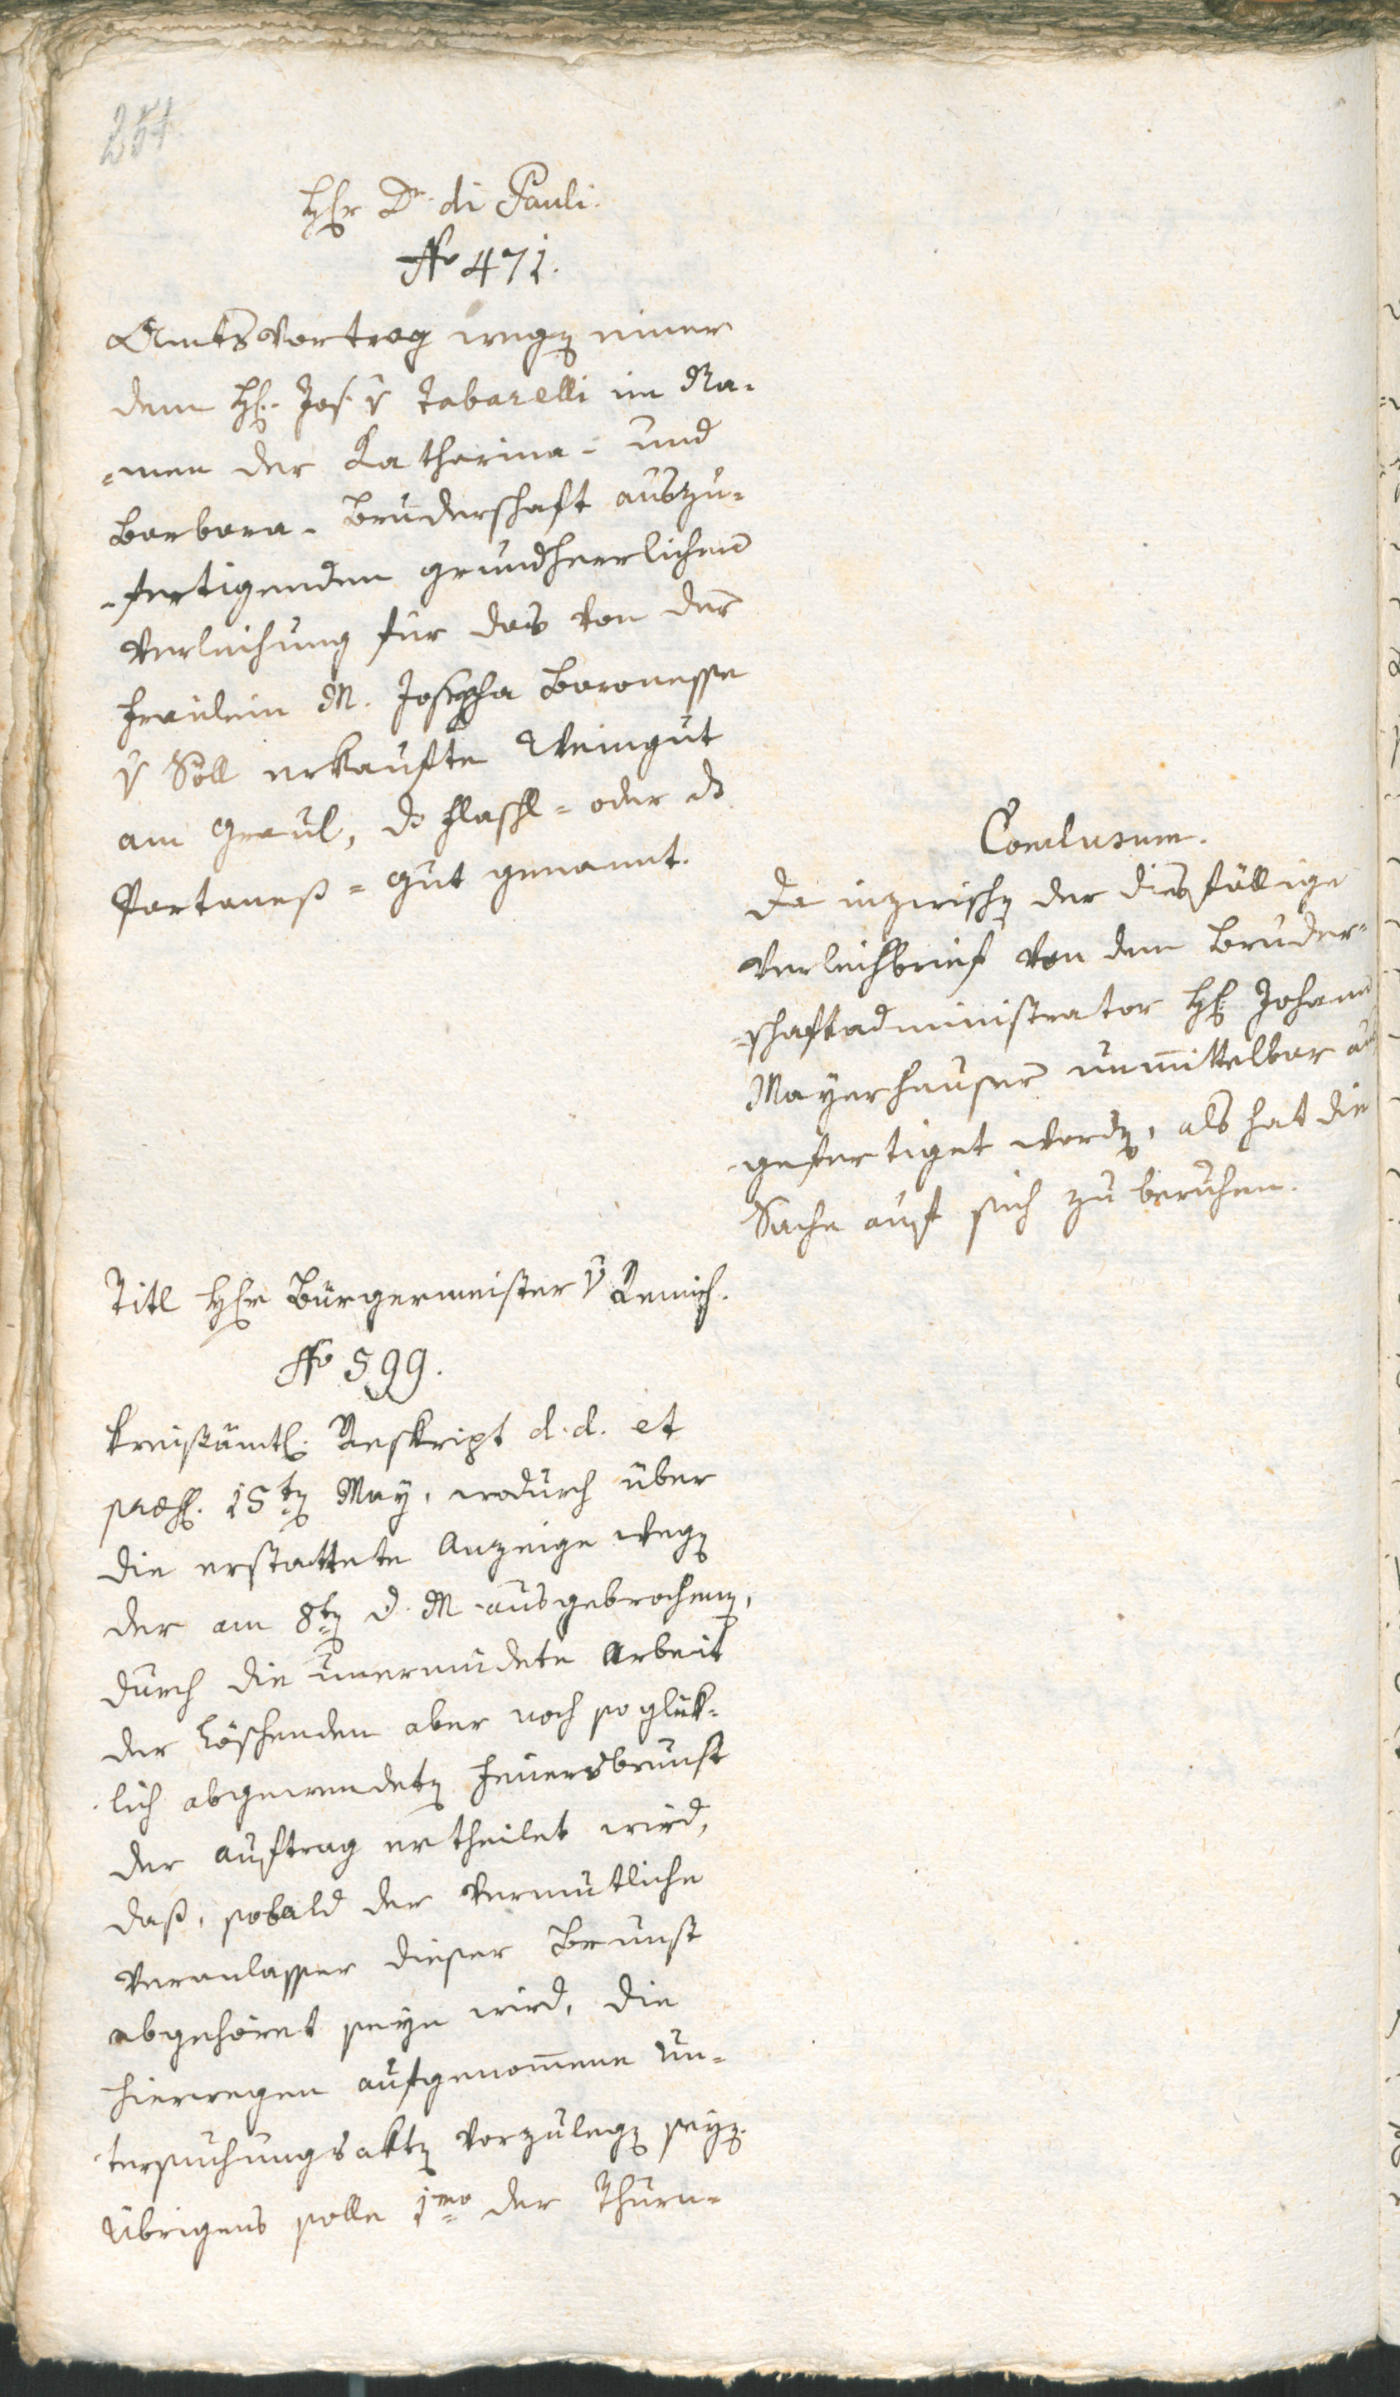 254
HEr Dr. di Pauli.
No 471.
Amtsvortrag wegen einer
dem H. Jos. v Tabarelli im Na-
-men der Katharina- und
Barbara-Bruderschaft auszu-
-fertigenden grundherrlichen
Verleihung für das von der
Fräulein M. Josepha Baronesse
v Söll erkaufte Weingut
am Graul, do Flaschl- oder do
Partaneß-Gut genannt.
Conclusum.
Da inzwischen der diesfällige
Verleihbrief von dem Bruder-
-schaftadministrator H. Johann
Mayerhauser unmittelbar aus
gefertiget worden, als hat die
Sache auf sich zu beruhen.
Titl HEr Bürgermeister v Remich.
No 599.
Kreisämtl. Reskript d. d. et
præs. 15ten May, wodurch über
die erstattete Anzeige wegen
der am 8ten d. M. ausgebrochenen,
durch die unermüdete Arbeit
der Löschenden aber noch so glük-
lich abgewendeten Feuersbrunst
der Auftrag ertheilet wird,
daß, sobald der vermutliche
Veranlasser dieser Brunst
abgehöret seyn wird, die
hierwegen aufgenommene Un-
tersuchungsakten vorzulegen seyen.
Übrigens solle 1mo der Thurn-